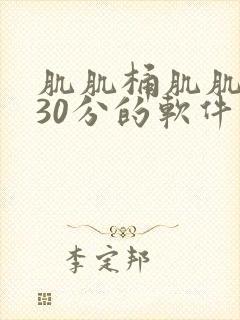 肌肌桶肌肌
30分的軟件
李定邦